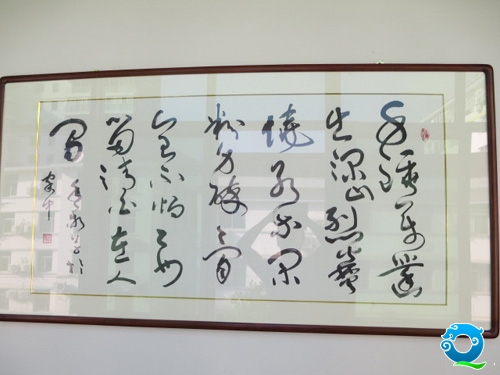 千锤万凿
出深山烈火焚
烧若等闲
粉身碎骨
全不怕要
留清白在人
间